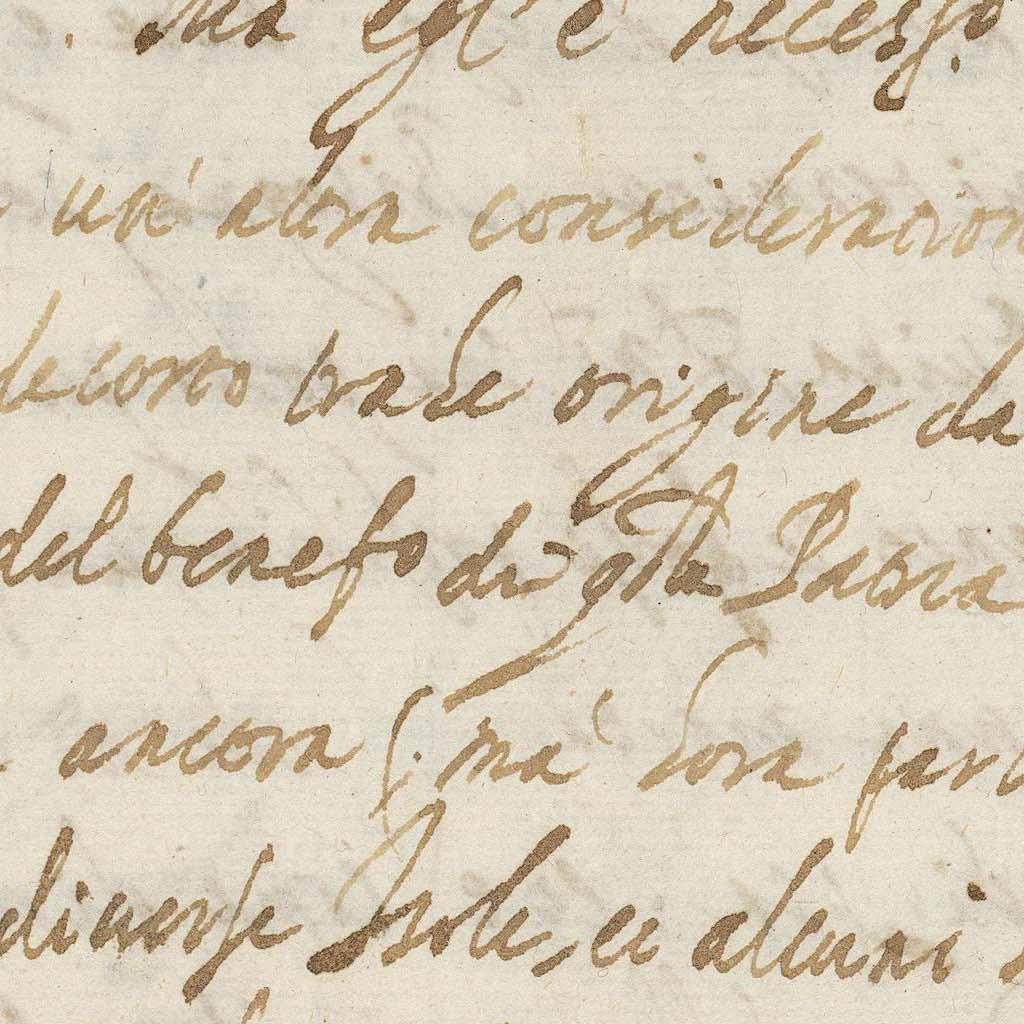 Ma egl' è necess.o
un' altra consideracion
decorto trahe origine da
del benefo di qsta Patria
ancora (. ma' hora par
diverse Isole, et alcuni